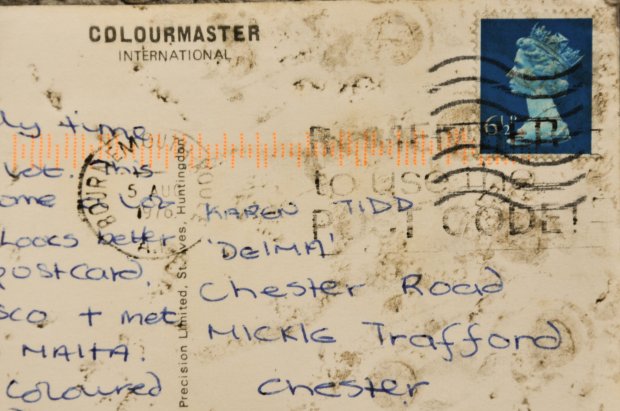 COLOURMASTER
INTERNATIONAL
6½P
REMEMBER
to use the
POST CODE!
BOURNEMOUTH
5 AUG
1976
Precision Limited, St. Ives, Huntingdon
time
this
ome
Looks better
postcard.
sco + met
MALTA.
coloured
KAREN TIDD
'DELMA'
Chester Road
MICKLE Trafford
Chester